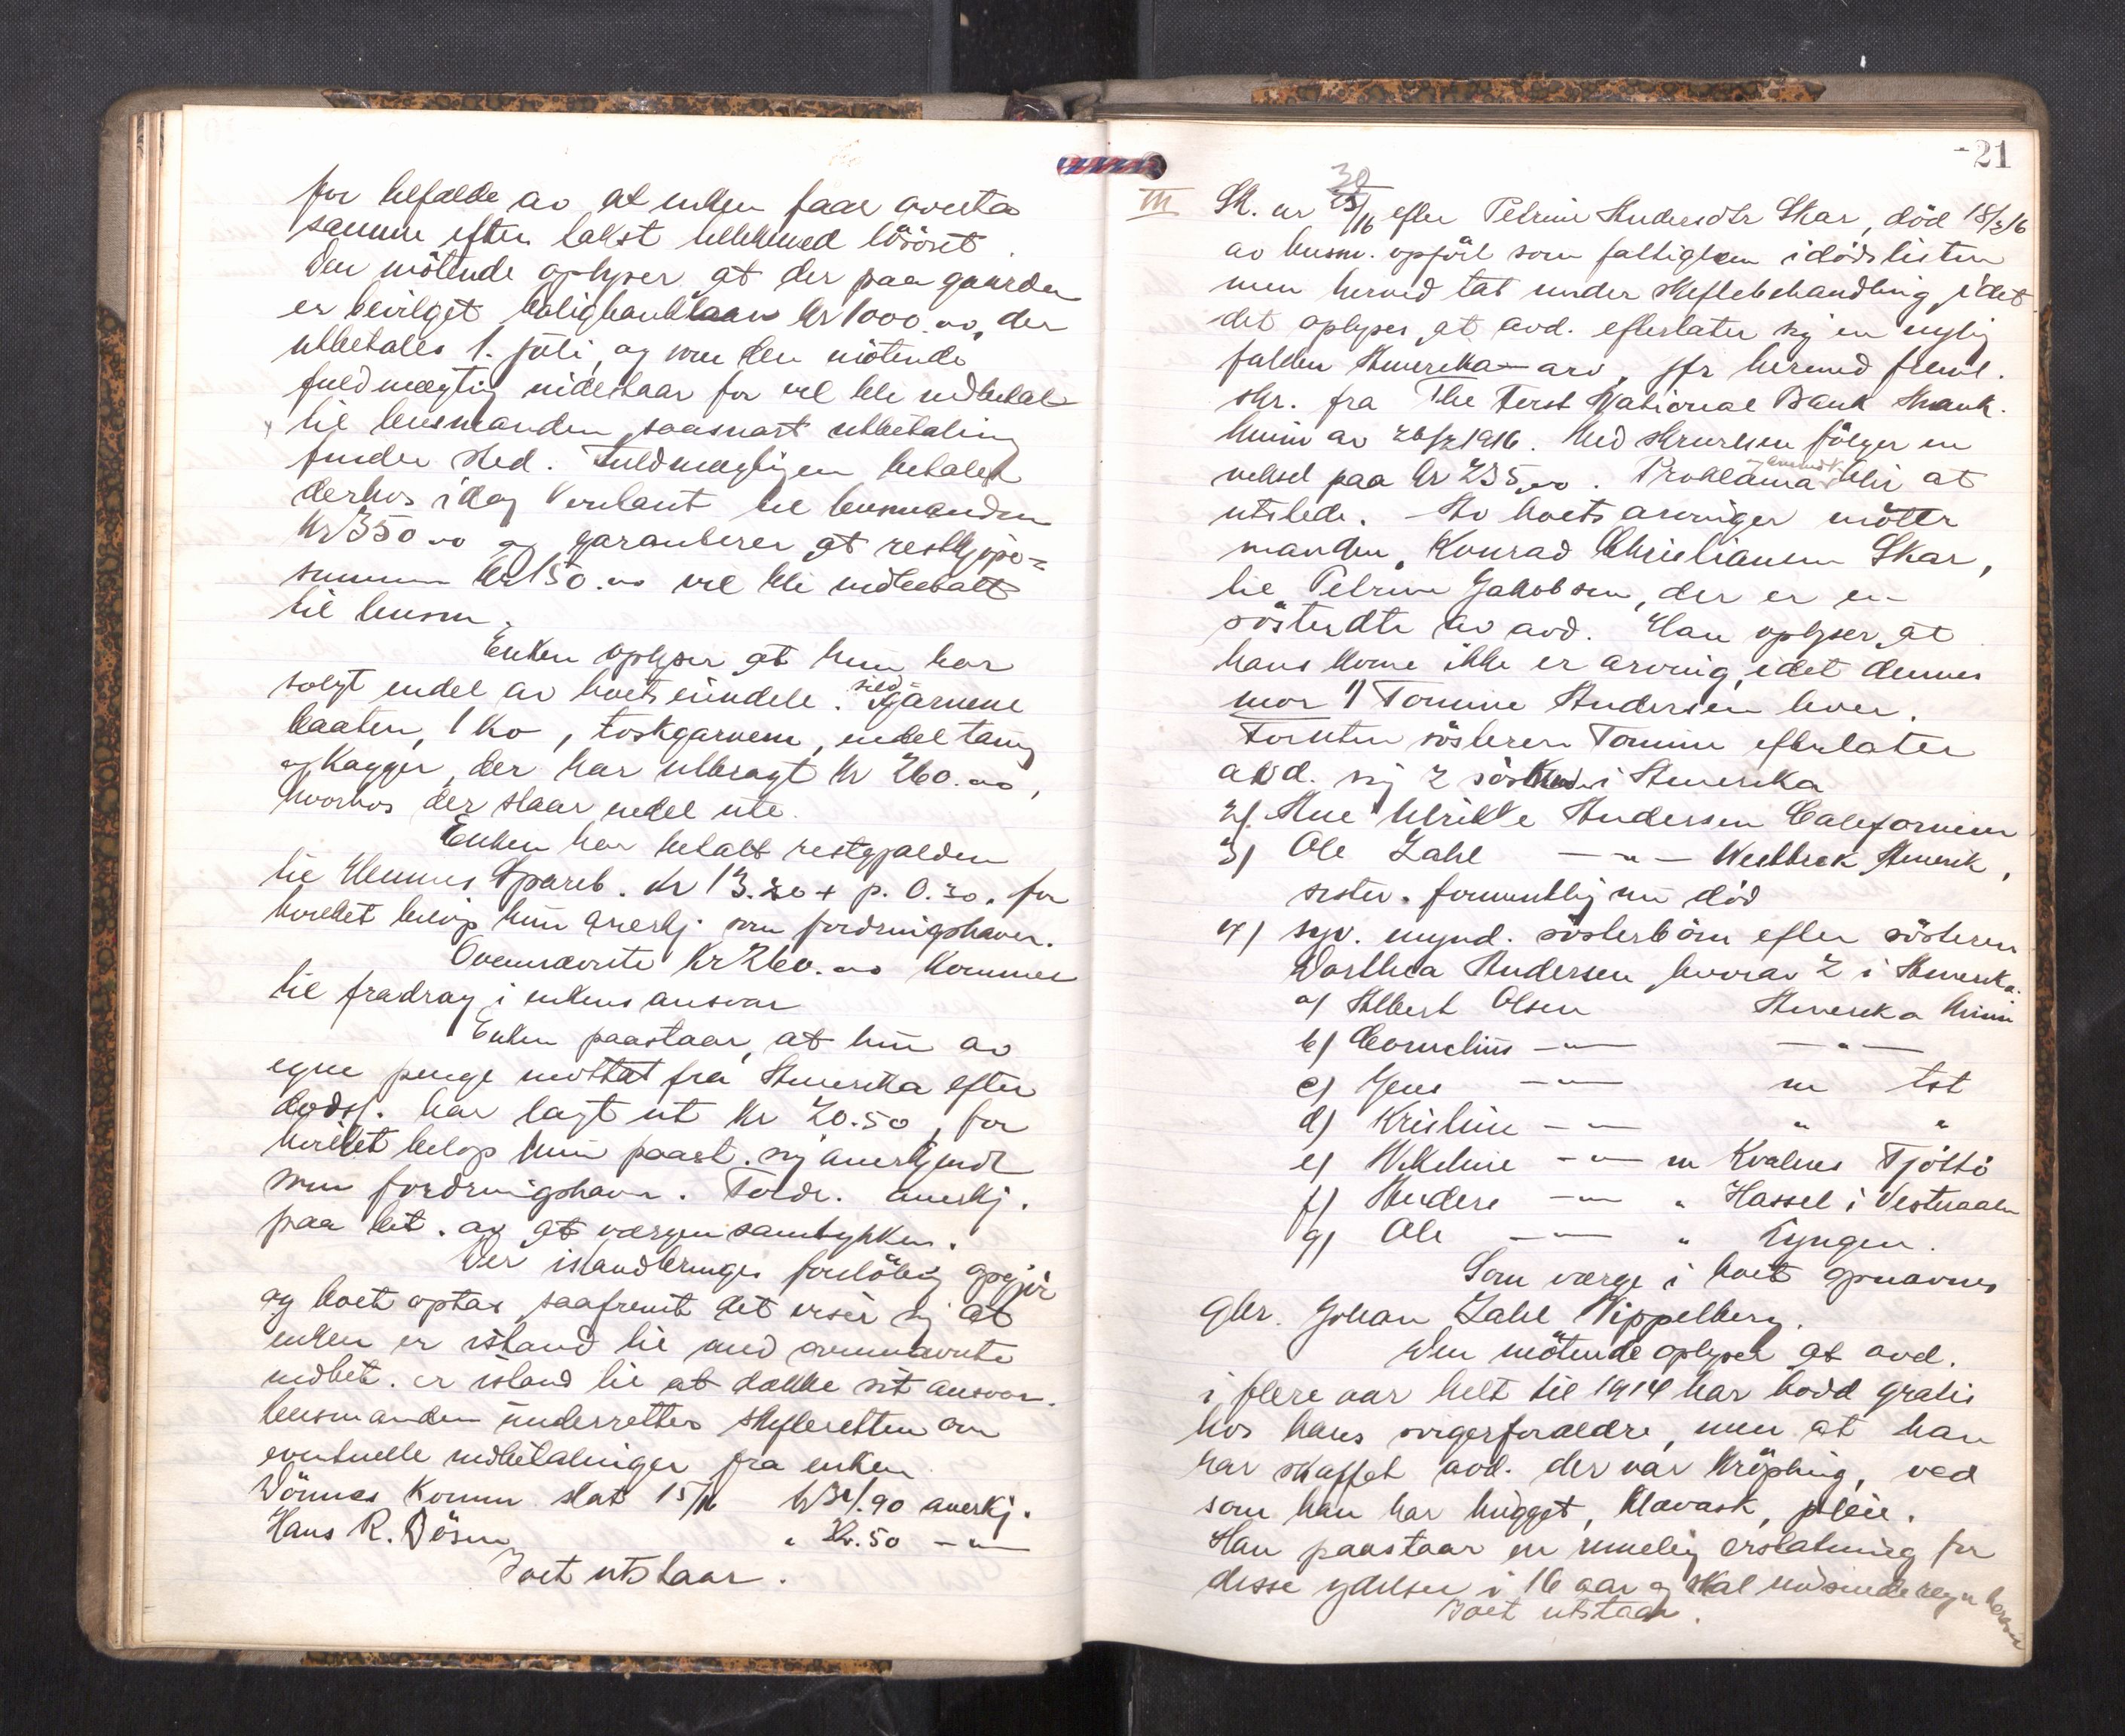 for tilfælde av at enken faar overta
samme efter takst uthkmed lösöret
Den mötende oplyser at der paa gaarden
er bevilget boligbanklaan kr 1000.00, der
utbetales 1. juli, og som den mötende
fuldmægtig indestaar for vil bli indbetalt
til lensmanden saasnart utbetaling
finder sted. Fuldmægtigen betalte
derhos idag kontant til lensmanden
kr 350.00 og garanterer at restkjöpe-
summen kr 150.00 vil bli indbetalt
til lensm.
Enken oplyser at hun har
solgt endel av boets eiendele. sild-garnene
baaten, 1 ko, toskgarnene, endel tang
og kagger, der har utbragt kr 260.00,
hvorhos der staar endel ute.
Enken har betalt restgjælden
til Hemnes Spareb. kr 13.20 + p. 0.30, for
hvilket belöp hun anerkj. som fordringshaver.
Ovennævnte kr 260.00 kommer
til fradrag i enkens ansvar
Enken paastaar, at hun av
egne penge mottat fra Amerika efter
dödsf. har lagt ut kr 20.50, for
hvilket belöp hun paast. sig anerkjendt
som fordringshaver. Fordr. anerkj.
paa bet. av at værgen samtykker.
Der istandbringes foreløbig opgjör
og boet optas, saafremt det viser sig at
enken er istand til med ovennævnte
indbet. er istand til at dække sit ansvar.
Lensmanden underretter skifteretten om
eventuelle indbetalinger fra enken
Dönnes Komm skat 15/16 kr 31.90 anerkj.
Hans R. Dösen " .50 — " —
Boet utstaar.
21
III Sk. nr 30 /16 efter Petrine Andersdtr Skar, död 18/2 16
av lensm. opfört som fattiglem i dödslisten
men herved tat under skiftebehandling idet
det oplyses at avd. efterlater sig en nylig
falden Amerika-arv, jfr herved freml.
skr. fra The First National Bank Mank.
Minn av 26/2 1916. Med skrivelsen fölger en
veksel paa kr 235.00. Proklama blir at
utstede. Av boets arvinger mötte
manden, Konrad Christiansen Skar,
til Petrine Jakobsen, der er en
sösterdtr av avd. Han oplyser at
hans kone ikke er arving, idet dennes
mor 1) Tomine Andersen lever.
Foruten sösteren Tomine efterlater
avd. sig 2 söskend i Amerika
2). Ane Ulrikke Andersen Californien
3) Ole Zahl — " — Westbrok Amerik,
sister. formentlig nu död
4) syv. mynd. sösterbörn efter sösteren
Dorthea Andersen hvorav 2 i Amerika.
a) Albert Olsen Amerika Minn
b) Cornelius — " — — " —
c) Jens — " — m tst
d) Kristine — " — " "
e) Vikeline — " — m Kvalnes Tjöttö
f) Anders — " — " Hassel i Vesteraalen
g) Ole — " — " Lyngen.
Som værge i boet opnævnes
gbr. Johan Zahl Vippelberg.
Den mötende oplyser at avd.
i flere aar helt til 1914 har bodd gratis
hos hans svigerforældre, men at han
har skaffet avd. der var kröpling, ved
som han har hugget, klævask, pleie.
Han paastaar en rimelig erstatning for
disse ydelser i 16 aar og skal indsende regn herover
Boet utstaar.